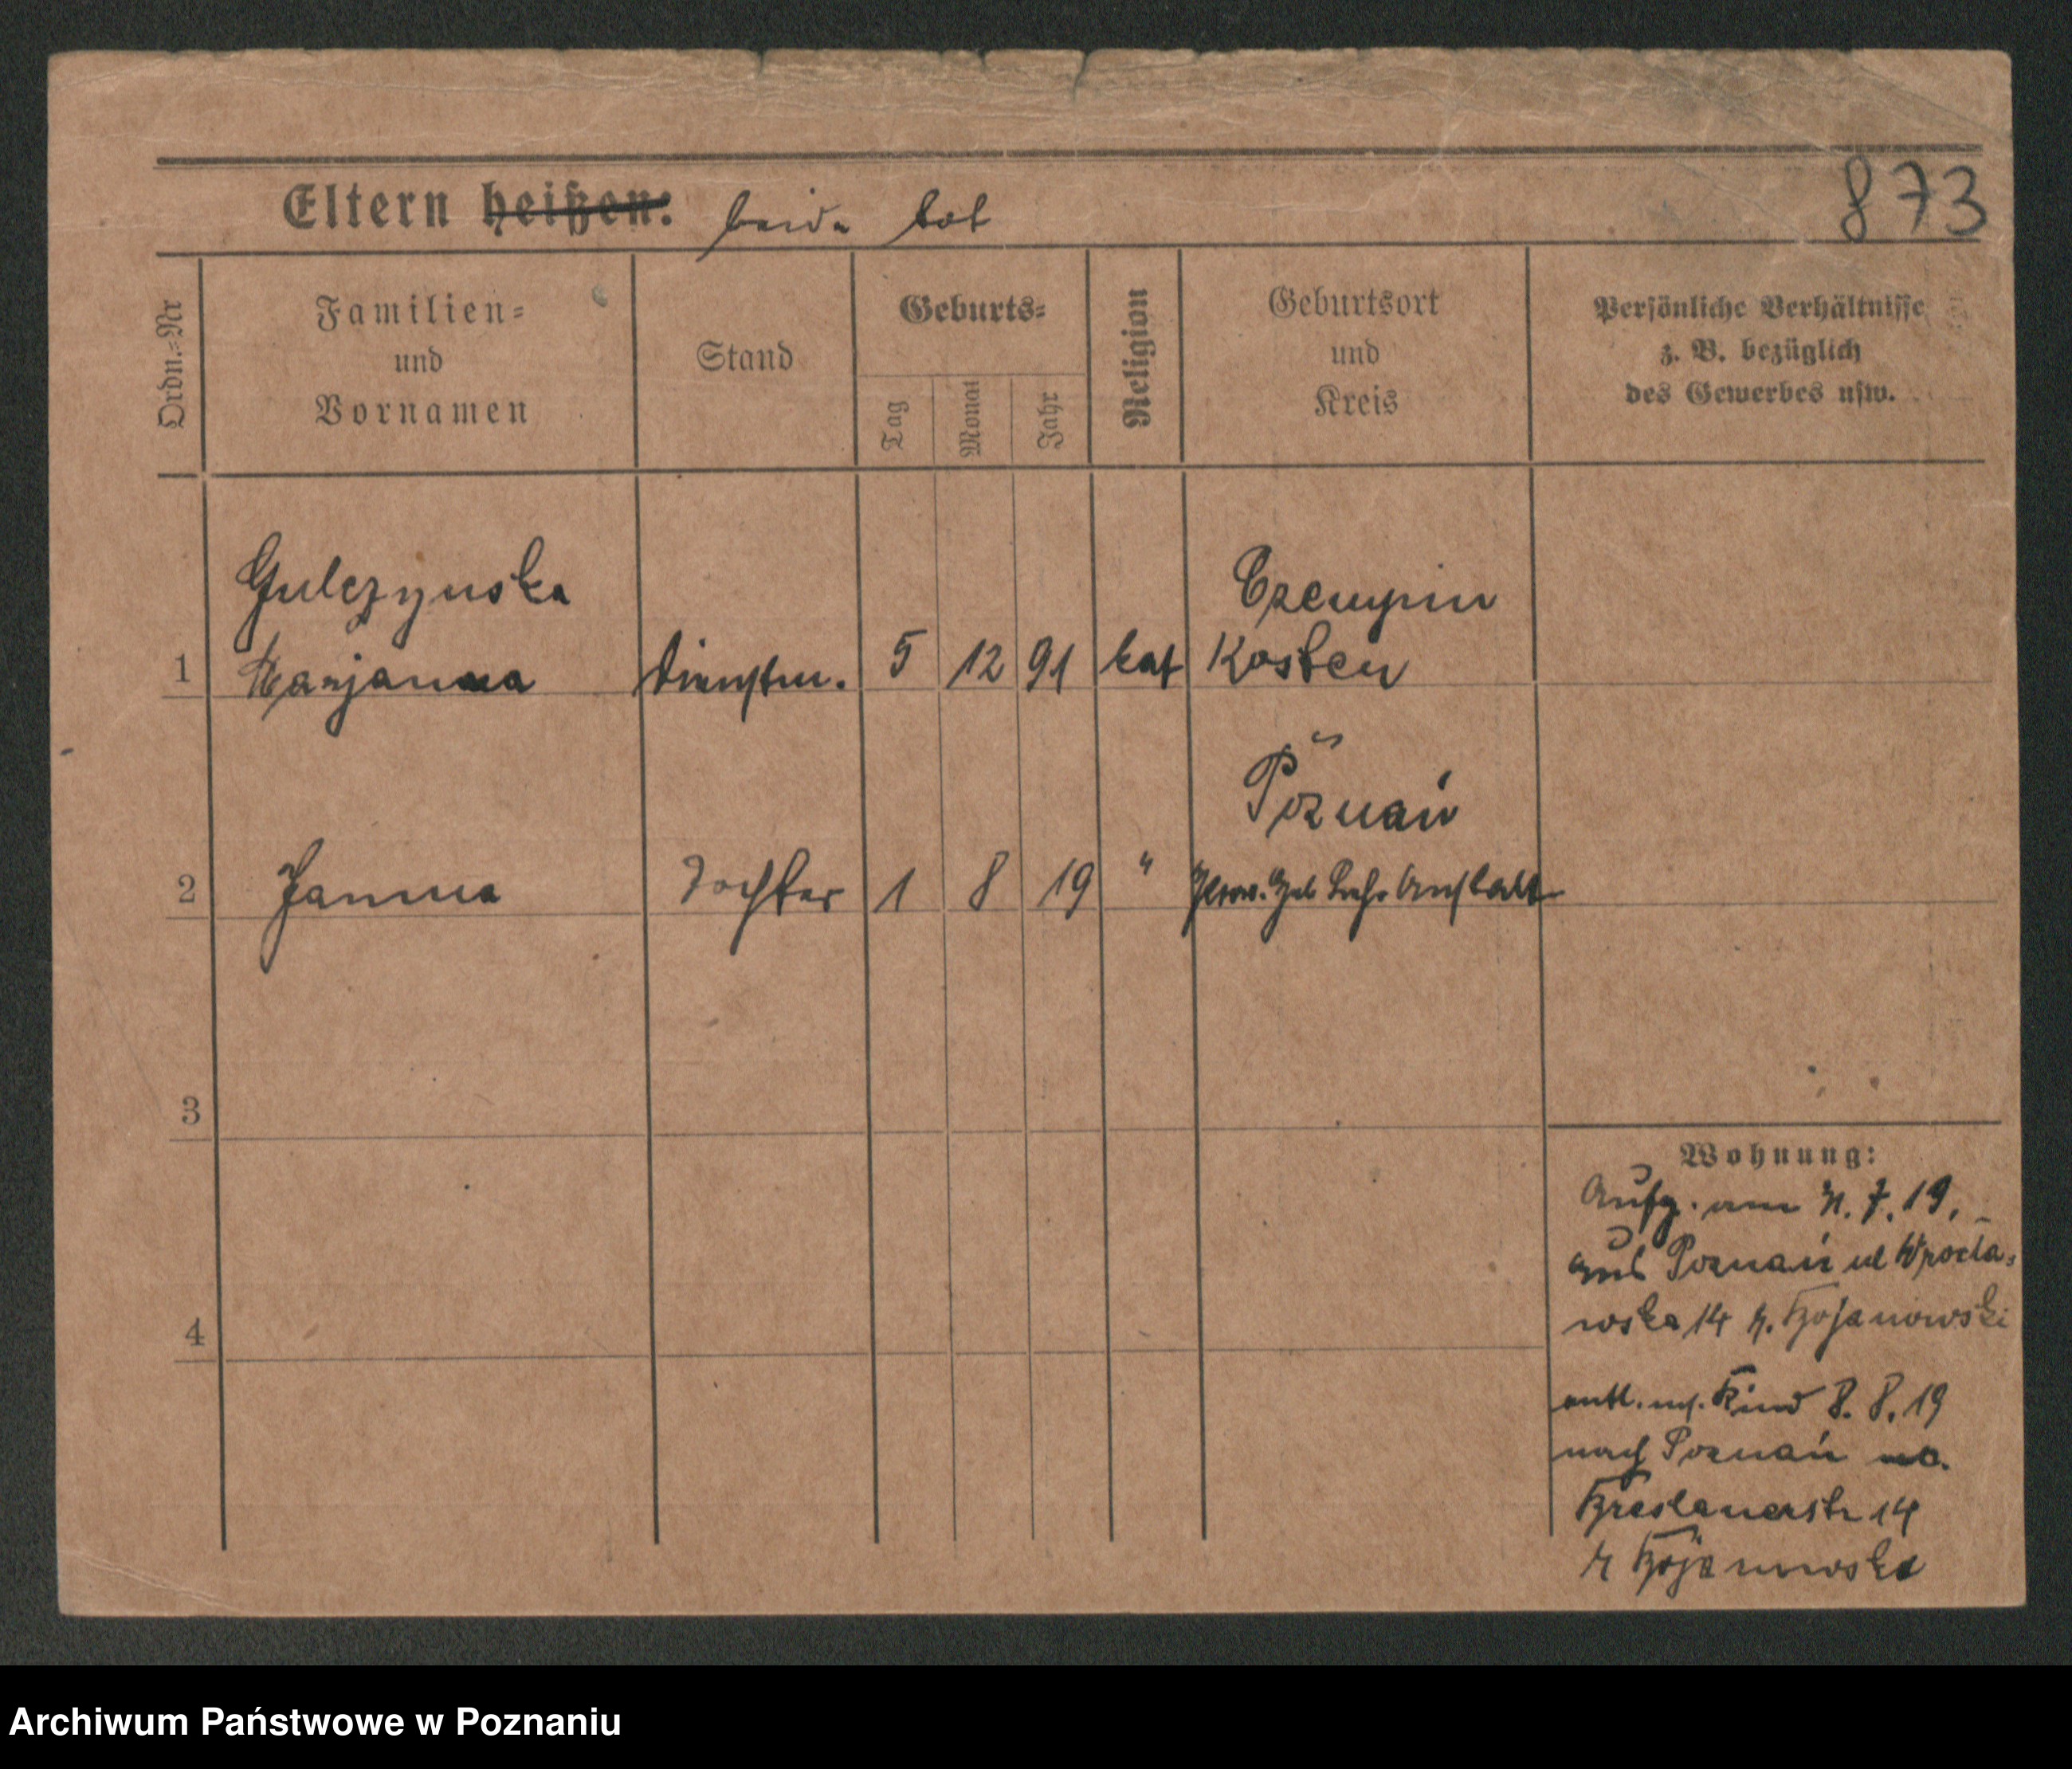 873
Eltern heißen: beide tot
Ordn.=Nr
Familien=
und
Vornamen
Stand
Geburts=
Tag
Monat
Jahr
Religion
Geburtsort
und
Kreis
Persönliche Verhältnisse
z. B. bezüglich
des Gewerbes usw.
Gulczynska
Czempin
1 Marjanna Dienstm. 5 12 91 kat Kosten
Poznań
2 Janina Tochter 1 8 19 " Prov. Heb Lehr Anstalt
3
4
Wohnung:
Aufg. am 7. 19.
aus Poznań ul Wrocła=
wska 14 Bojanowski
entl. m. Kind 8. 8. 19
nach Poznań
Breslauerstr 14
Bojanowska
Archiwum Państwowe w Poznaniu